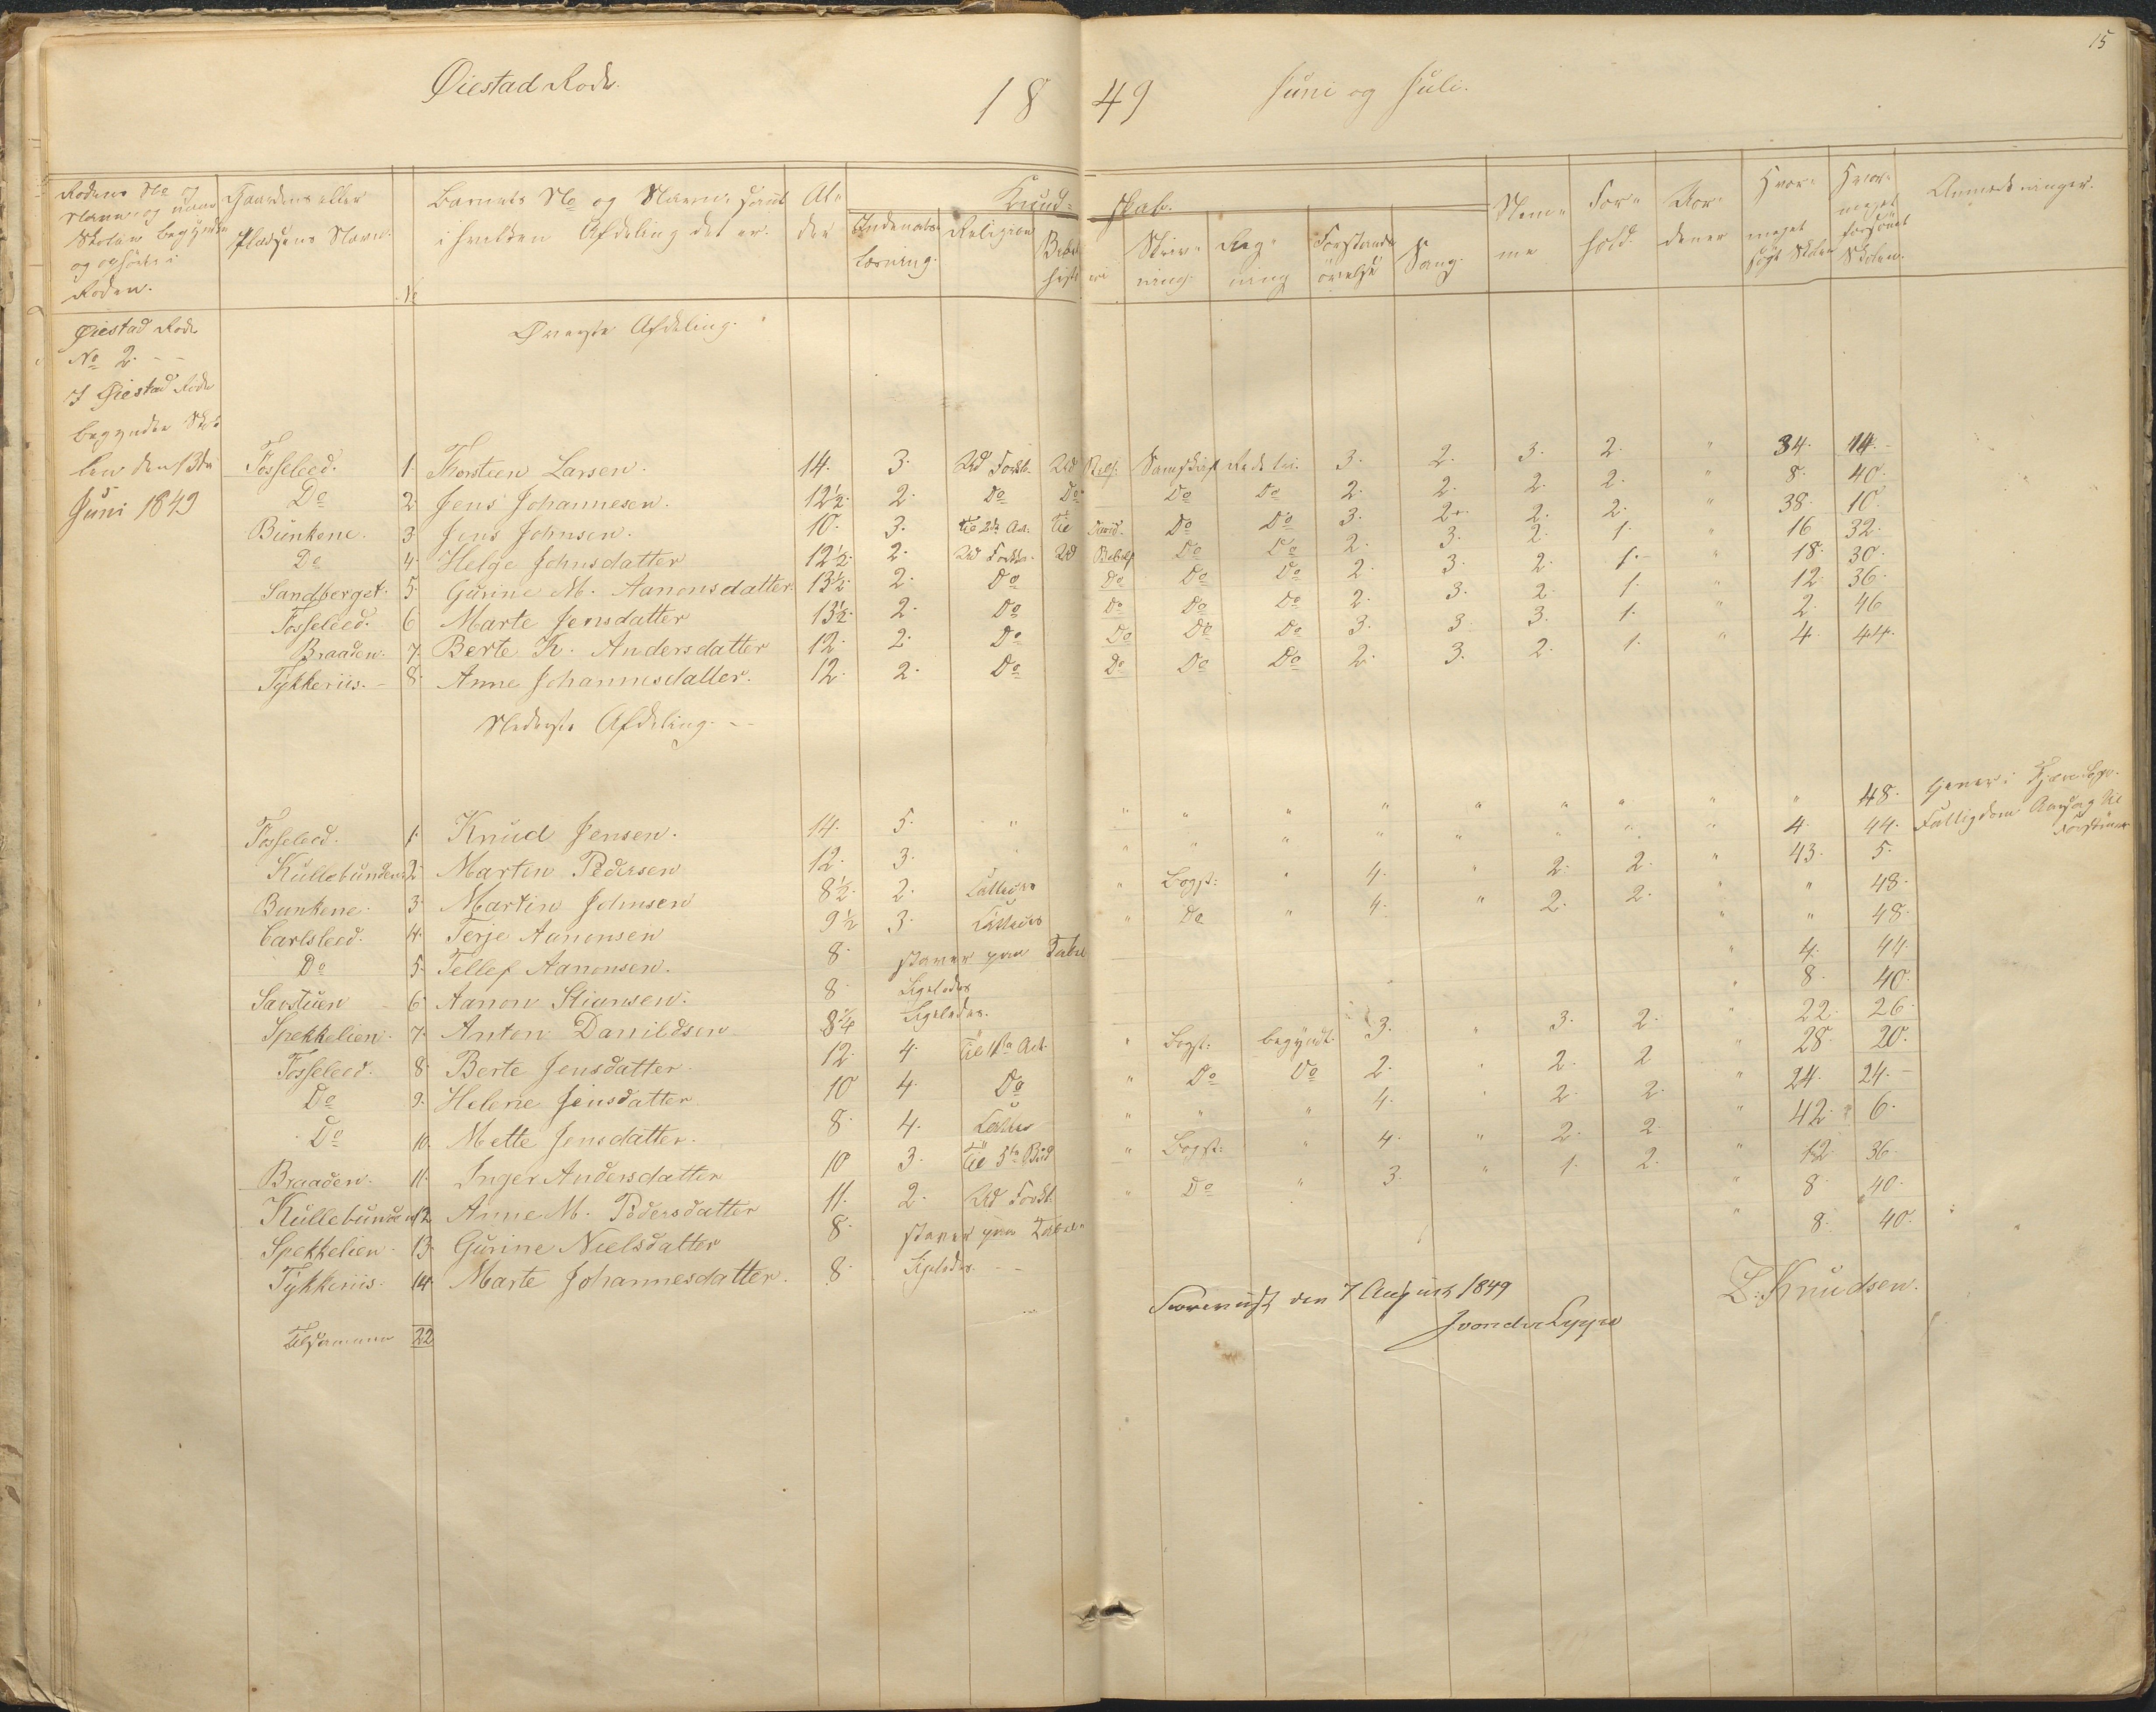 15
Øiestad Rode. 1849 Juni og Juli.
Rodens No og Navn og naar Skolen begyndte og ophørte i Roden.
Gaardens eller Pladsens Navn.
No
Barnets No og Navn, samt i hvilken Afdeling det er.
Alder
Kundskab.
Indenadslæsning.
Religion
Skrivning.
Regning
Forstandsøvelse
Sang.
Nemme
Forhold.
Hvormeget søgt Skolen
Hvormeget forsømt Skolen.
Anmærkninger.
Øiestad Rode
No 2.
I Øiestad Rode
begyndte Skolen den 13de
Juni 1849
Øverste Afdeling.
Fosseleed. 1. Thorsteen Larsen. 14. 3. Ud Forkl. Ud Samskrift 3. 2. 3. 2. " 34. 14.
Do 2. Jens Johannesen. 12½. 2. Do Do Do Do 2. 2. 2. 2. " 8. 40.
Bunkene. 3. Jens Johnsen. 10. 3. til 2den Art. til David. Do Do 3. 2. 2. 2. " 38. 10.
Do 4. Helge Johnsdatter 12½. 2. Ud Forkl. Ud Do Do 2. 3. 2. 1. " 16 32.
Sandberget. 5. Gurine M. Aanonsdatter. 13½. 2. Do Do Do Do 2. 3. 2. 1. " 18. 30.
Fosseleed. 6 Marte Jensdatter 13½. 2. Do Do Do Do 2. 3. 2. 1. " 12. 36.
Braaden. 7. Berte K. Andersdatter 12. 2. Do Do Do Do 3. 3. 3. 1. " 2. 46
Tykkeriis. 8. Anne Johannesdatter. 12. 2. Do Do Do Do 2. 3. 2. 1. " 4. 44.
Nederste Afdeling.
Fosseleed. 1. Knud Jensen. 14. 5. " " " " " " " " " " 48.
Kullebunden. 2. Marten Pedersen 12. 3. " " " " " " " " " 4. 44. Fattigdom Aarsag til Forsømmelse
Bunkene. 3. Martin Johnsen 8½. 2. " Bogst: " 4. " 2. 2. " 43. 5.
Carlsleed. 4. Terje Aanonsen 9½ 3. " Do " 4. " 2. 2. " " 48.
Do 5. Tellef Aanonsen. 8. staver paa Tabel " " 48.
Savstuen 6. Aanon Stiansen. 8. Ligeledes " 4. 44.
Spekkelien. 7. Anton Danildsen 8¼ Ligeledes. " 8. 40.
Fosseleed. 8. Berte Jensdatter. 12. 4. til 1ste Art. " Bogst: begyndt 3. " 3. 2. " 22. 26.
Do 9. Helene Jensdatter 10 4. Do " Do Do 2. " 2. 2 " 28. 20.
Do 10. Mette Jensdatter. 8. 4. " " " 4. " 2. 2. " 24. 24.
Braaden. 11. Inger Andersdatter 10 3. til 5te Bud " Bogst: " 4. " 2. 2. " 42. 6.
Kullebunden 12. Anne M. Pedersdatter 11. 2. Ud Forkl. " Do " 3. " 1. 2. " 12. 36.
Spekkelien. 13. Gurine Nielsdatter 8. staver paa Tabel " 8. 40.
Tykkeriis. 14. Marte Johannesdatter. 8. Ligeledes. " 8. 40.
Tilsammen 22
Foreviist den 7 August 1849
J von der Lippe
Z. Knudsen.